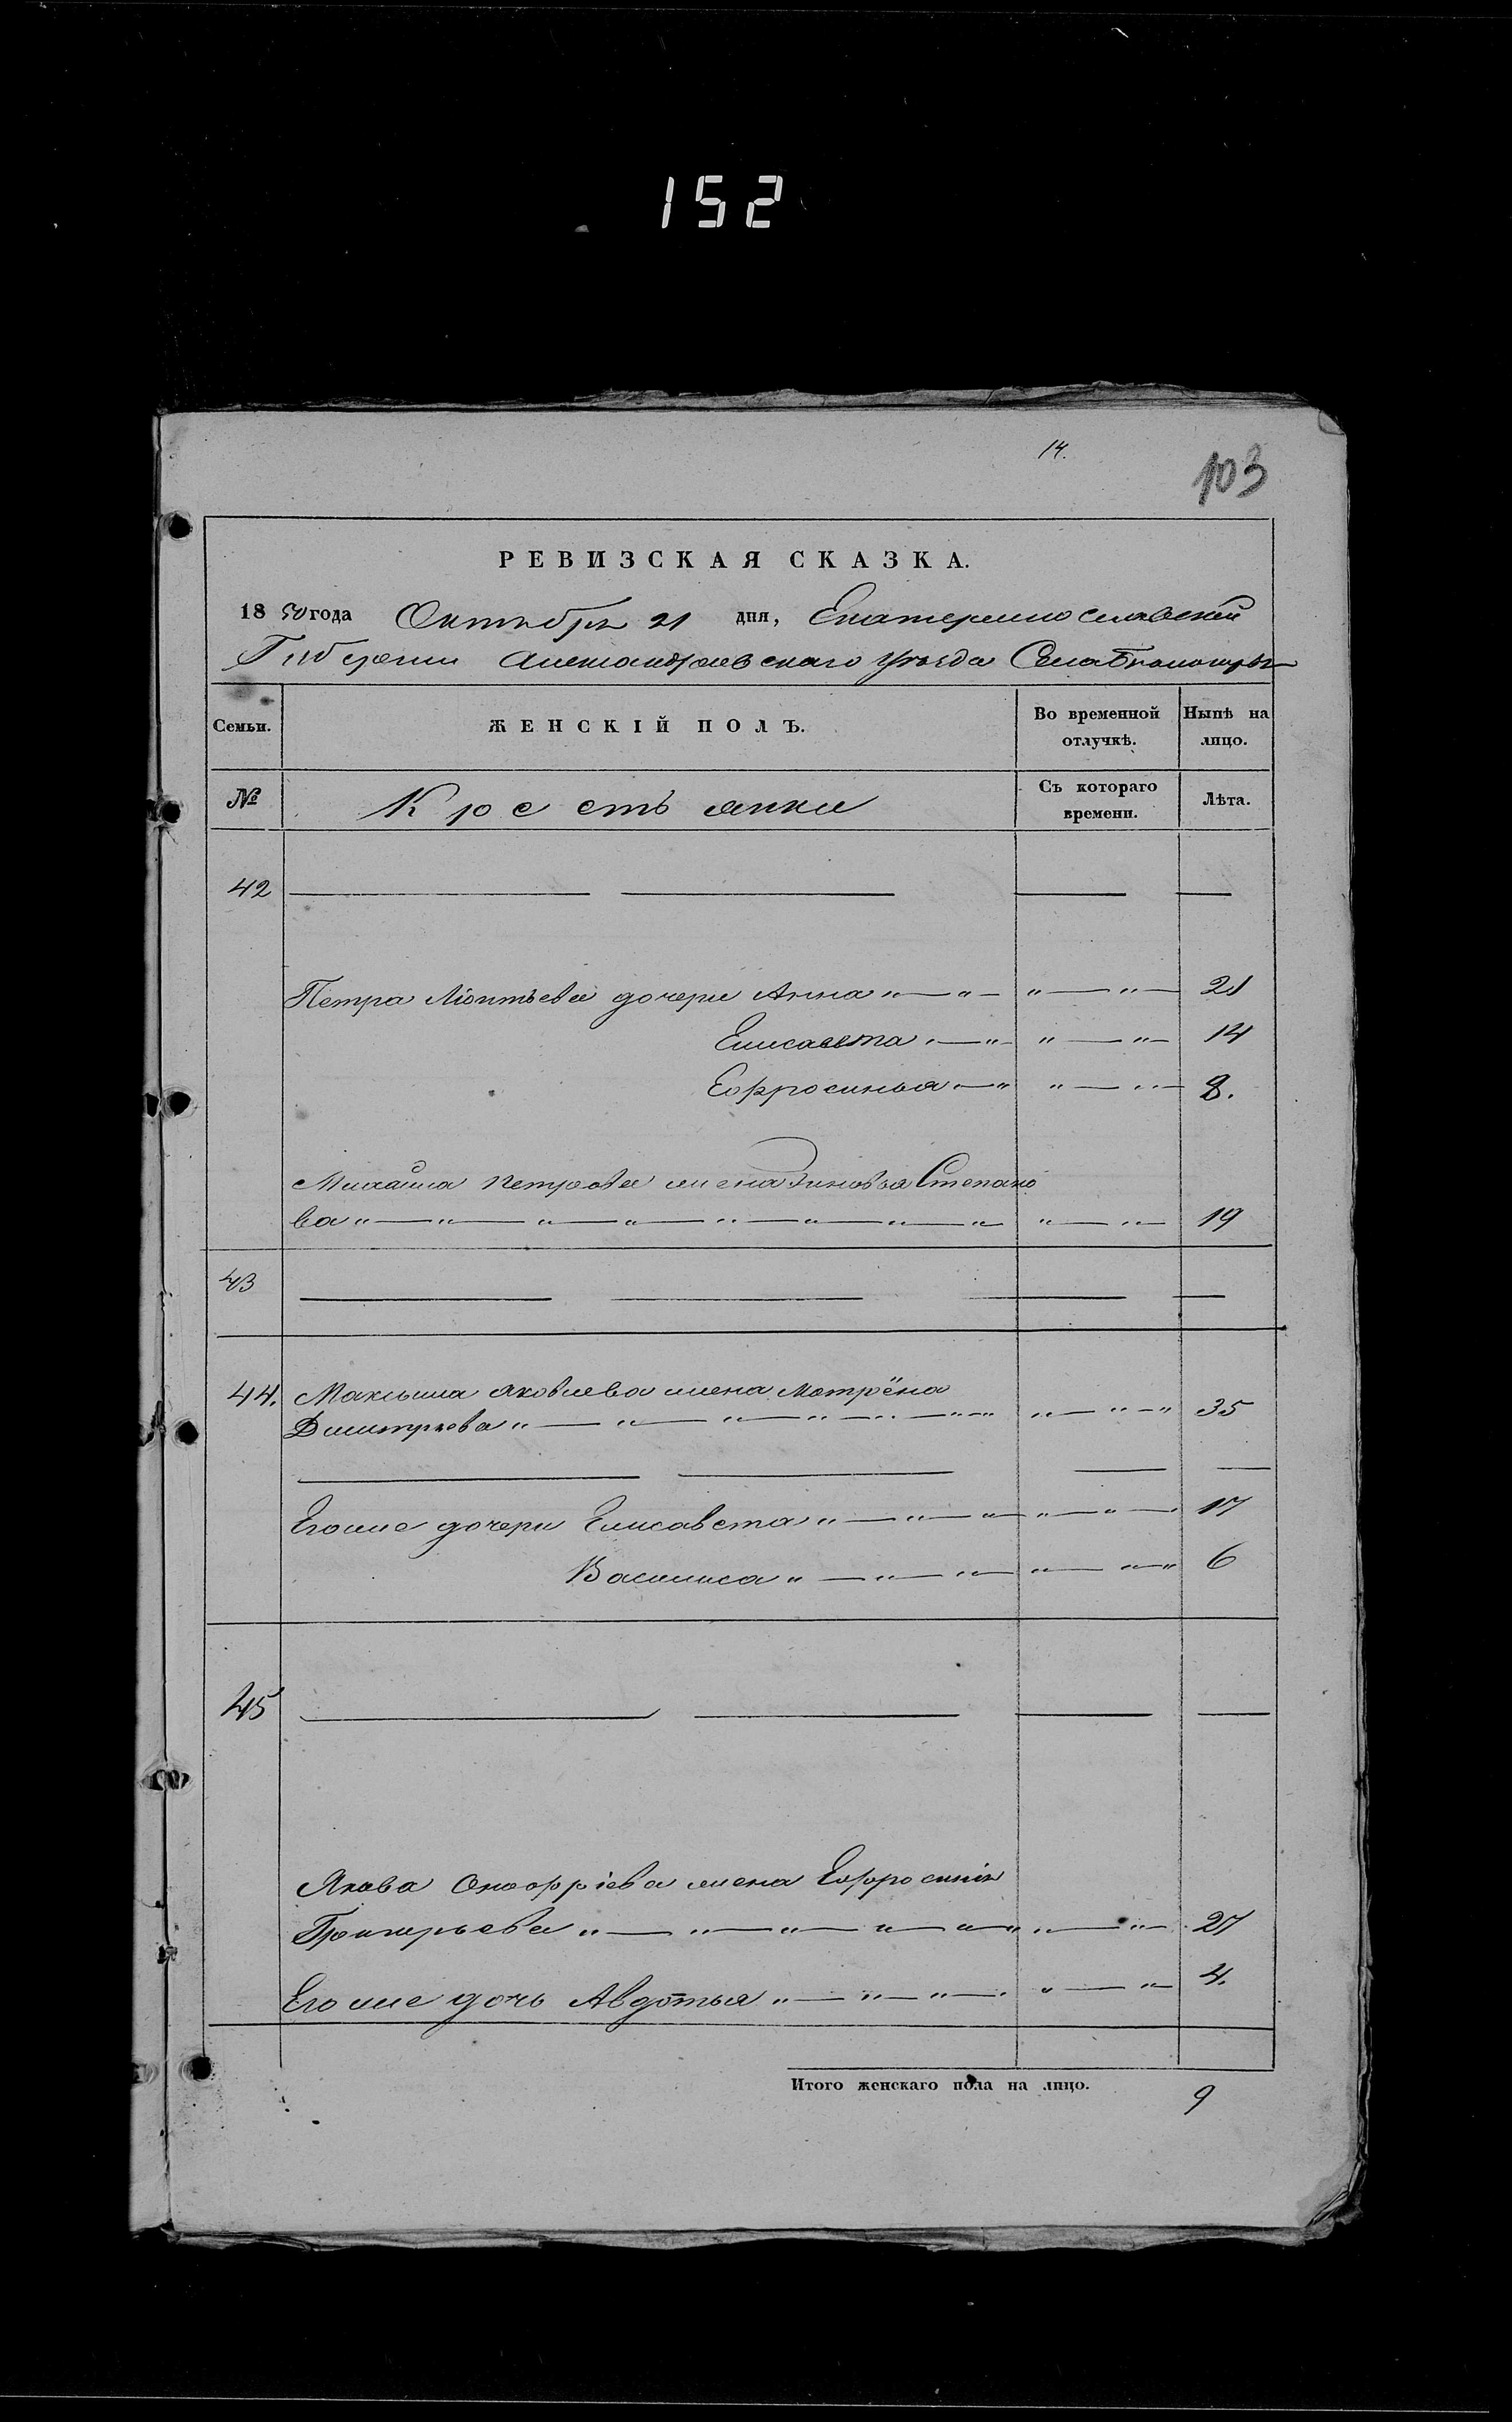 152
14.
103
РЕВИЗСКАЯ СКАЗКА.
1850 года Октября 21 дня, Екатеринославской
Губернии Александровскаго уѣзда Села
Семьи. ЖЕНСКІЙ ПОЛЪ. Во временной отлучкѣ. Нынѣ на лицо.
№ Крестьянки Съ котораго времени. Лѣта.
42
Петра Ліонтьева дочери Анна " — " — " — " — 21
Елисавета " — " — " — " — 14
Ефросинья — " " — " — 8.
Михайла Петрова жена Зиновья Степано
ва " — " — " — " — " — " — " — " " — " — 19
43
44. Максима Яковлева жена Матрёна
Дмитріева " — " — " — " — " — " " — " — " 35
Его же дочери Елисавета " — " — " — " — " — 17
Василиса " — " — " — " — " — " 6
45
Якова Оноофріева жена Ефросинія
Григорьева " — " — " — " — " — " " — " — 27
Его же дочь Авдотья " — " — " — " — " 4.
Итого женскаго пола на лицо. 9